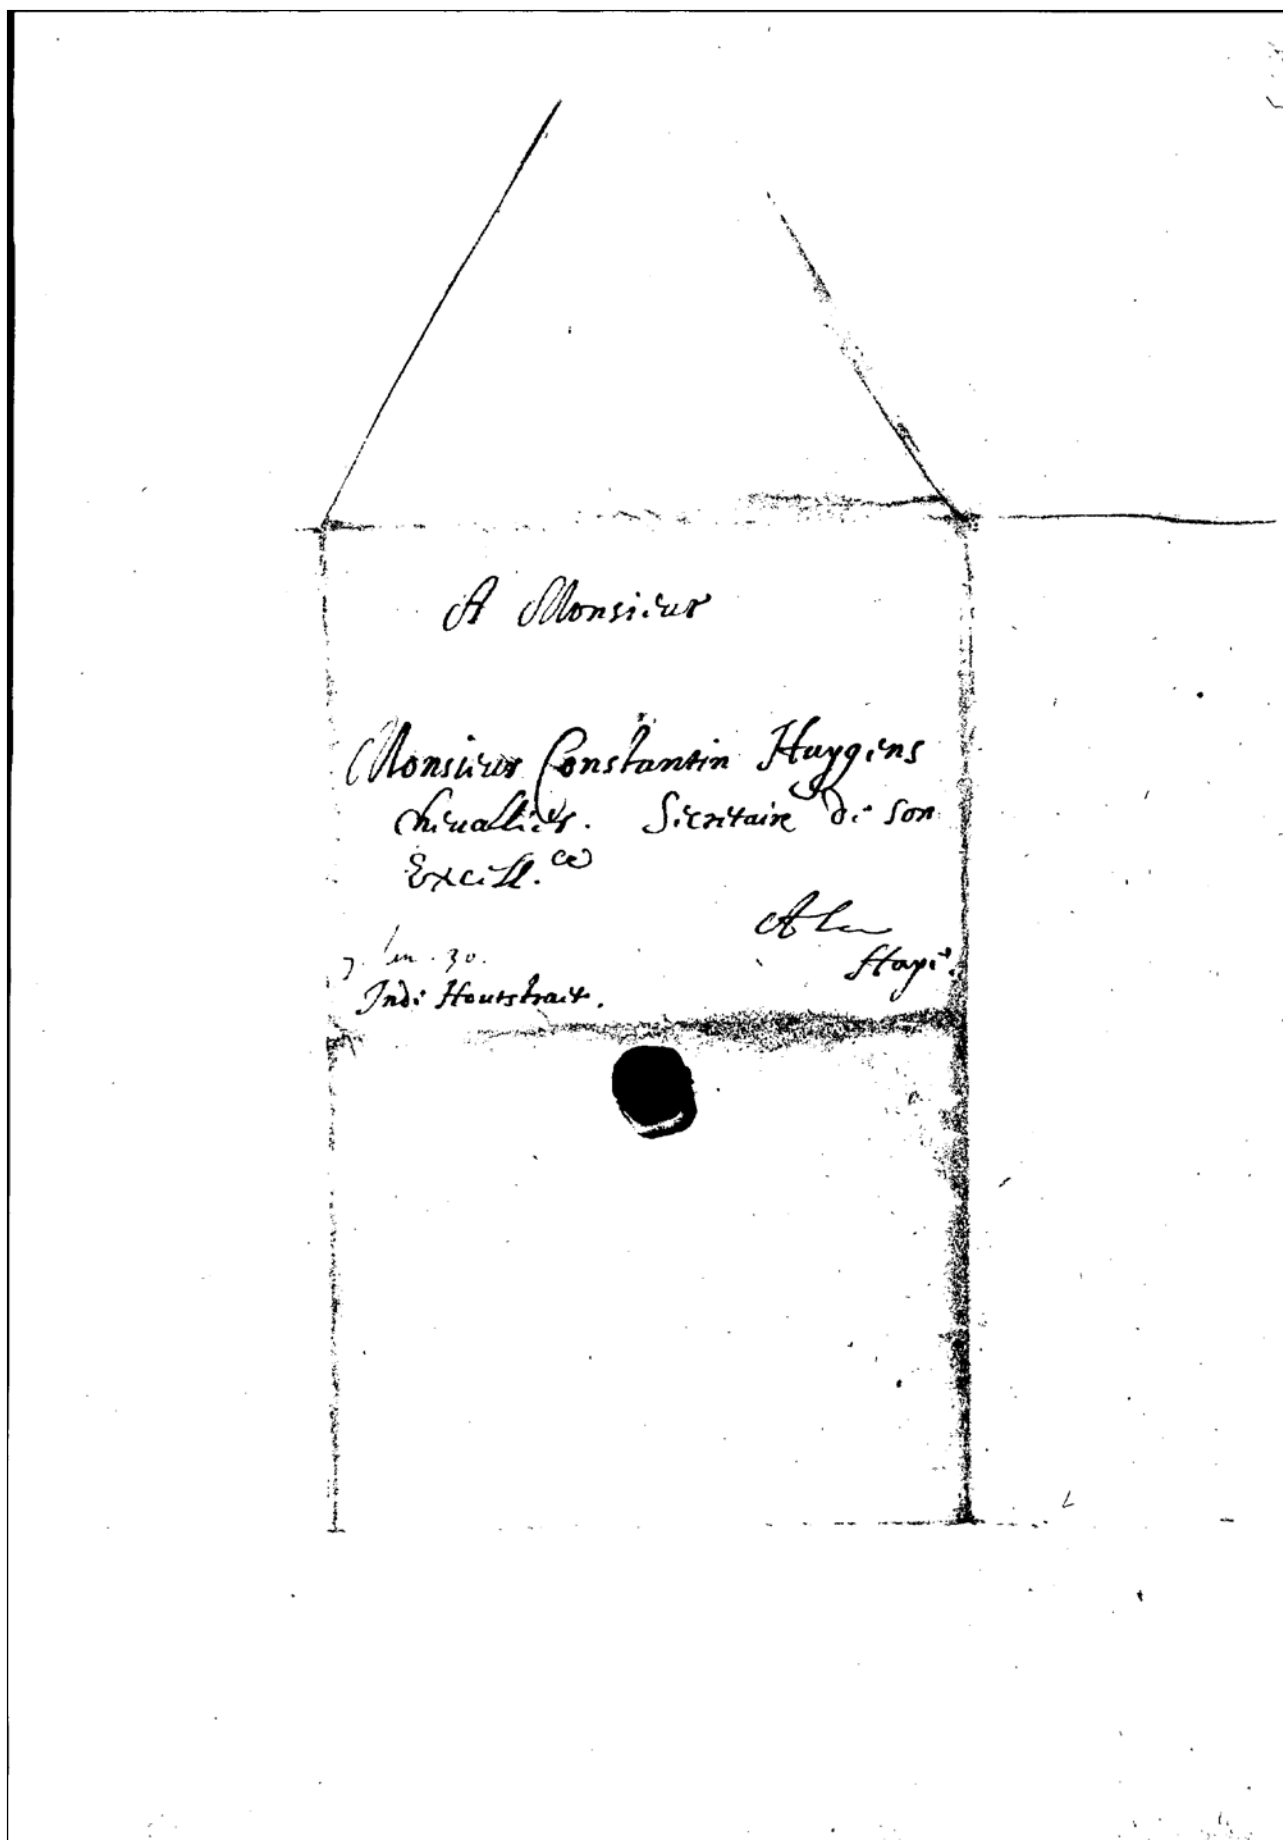 A Monsieur
Monsieur Constantin Huygens
chevallier. Secretaire de son
Excell.ce
A la
Haye.
7. Jan. 30.
Inde Houtstraet.